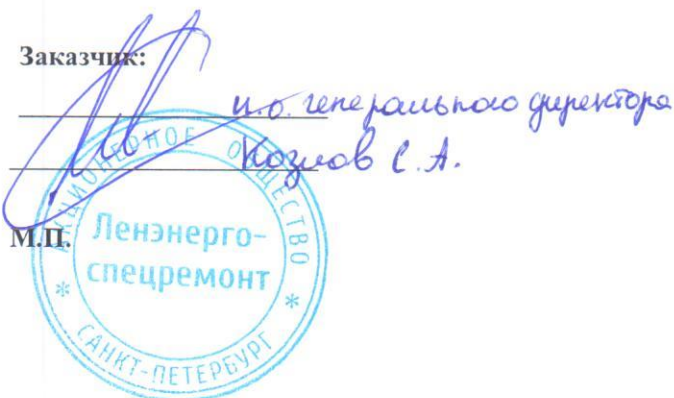 Заказчик:
и.о. генерального директора
Козлов С.А.
М.П.
АКЦИОНЕРНОЕ ОБЩЕСТВО
Ленэнерго-
спецремонт
* САНКТ-ПЕТЕРБУРГ *